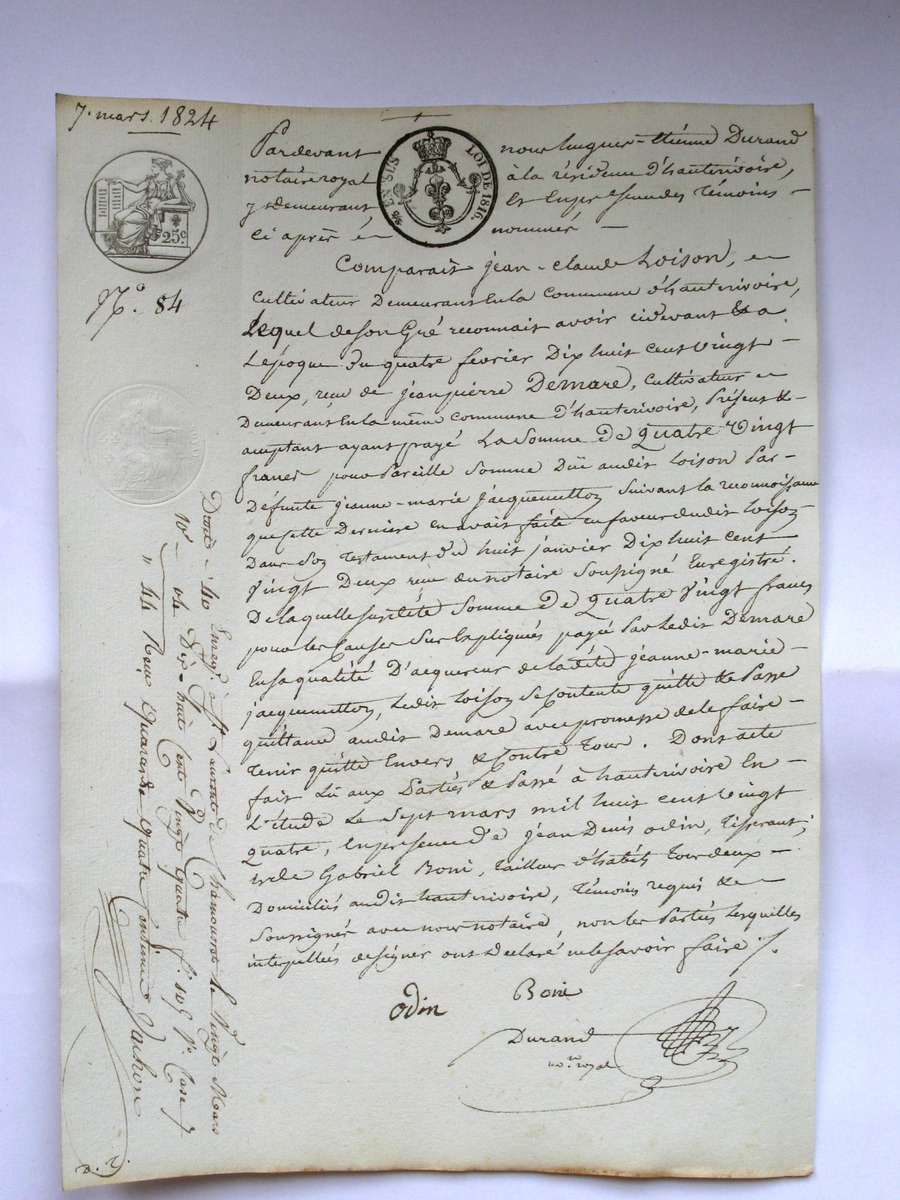 7. mars. 1824
Pardevant nous hugues-étienne Durand
notaire royal à la résidence d'hauterivoire,
y demeurant Et En présence des témoins -
ci après nommés -
EN SUS
LOI DE 1816.
25c
N°. 84
Comparait jean-claude Loison,
Cultivateur Demeurant En la Commune d'hauterivoire,
Lequel de son Gré reconnait avoir cidevant & a
L'époque du quatre fevrier Dix huit cent Vingt -
Deux, reçu de jean pierre Demare, Cultivateur
Demeurant En la même Commune d'hauterivoire, Présent &
acceptant ayant payé La Somme De Quatre Vingt
francs pour Pareille Somme Düe audit Loison Par
Défunte jeanne-marie jacquemetton Suivant la reconnoissance
que cette Dernière en avait faite en faveur dudit Loison
Dans Son Testament du huit janvier Dix huit Cent
Vingt Deux reçu du notaire Soussigné Enregistré.
De laquelle susdite Somme De Quatre Vingt francs
pour les Causes Sus Expliqués payée Par Ledit Demare
En sa qualité D'acquereur de ladite jeanne-marie -
jacquemetton, Ledit Loison Se Contente quitte & Passe
quittance audit Demare avec promesse de le faire -
Tenir quitte Envers & Contre Tous. Dont acte
fait Lû aux Parties & Passé à hauterivoire En
L'étude Le Sept mars mil huit cent Vingt
quatre, En présence de jean Denis odin, Tisserant,
& de Gabriel Boni, Tailleur d'habits Tous deux -
Domiciliés audit hauterivoire, Témoins requis &
Soussignés avec nous notaire, non les Parties Lesquelles
interpellées de signer ont Déclaré ne le savoir faire
odin
Boni
Durand
no.re royal
Enreg. à St Laurent de Chamousset Le Vingt Mars
Dix-huit Cent Vingt quatre f. 105 V. Case 7
Reçu Quarante quatre Centimes Vachon
Droit - 40
10e - 04
" 44